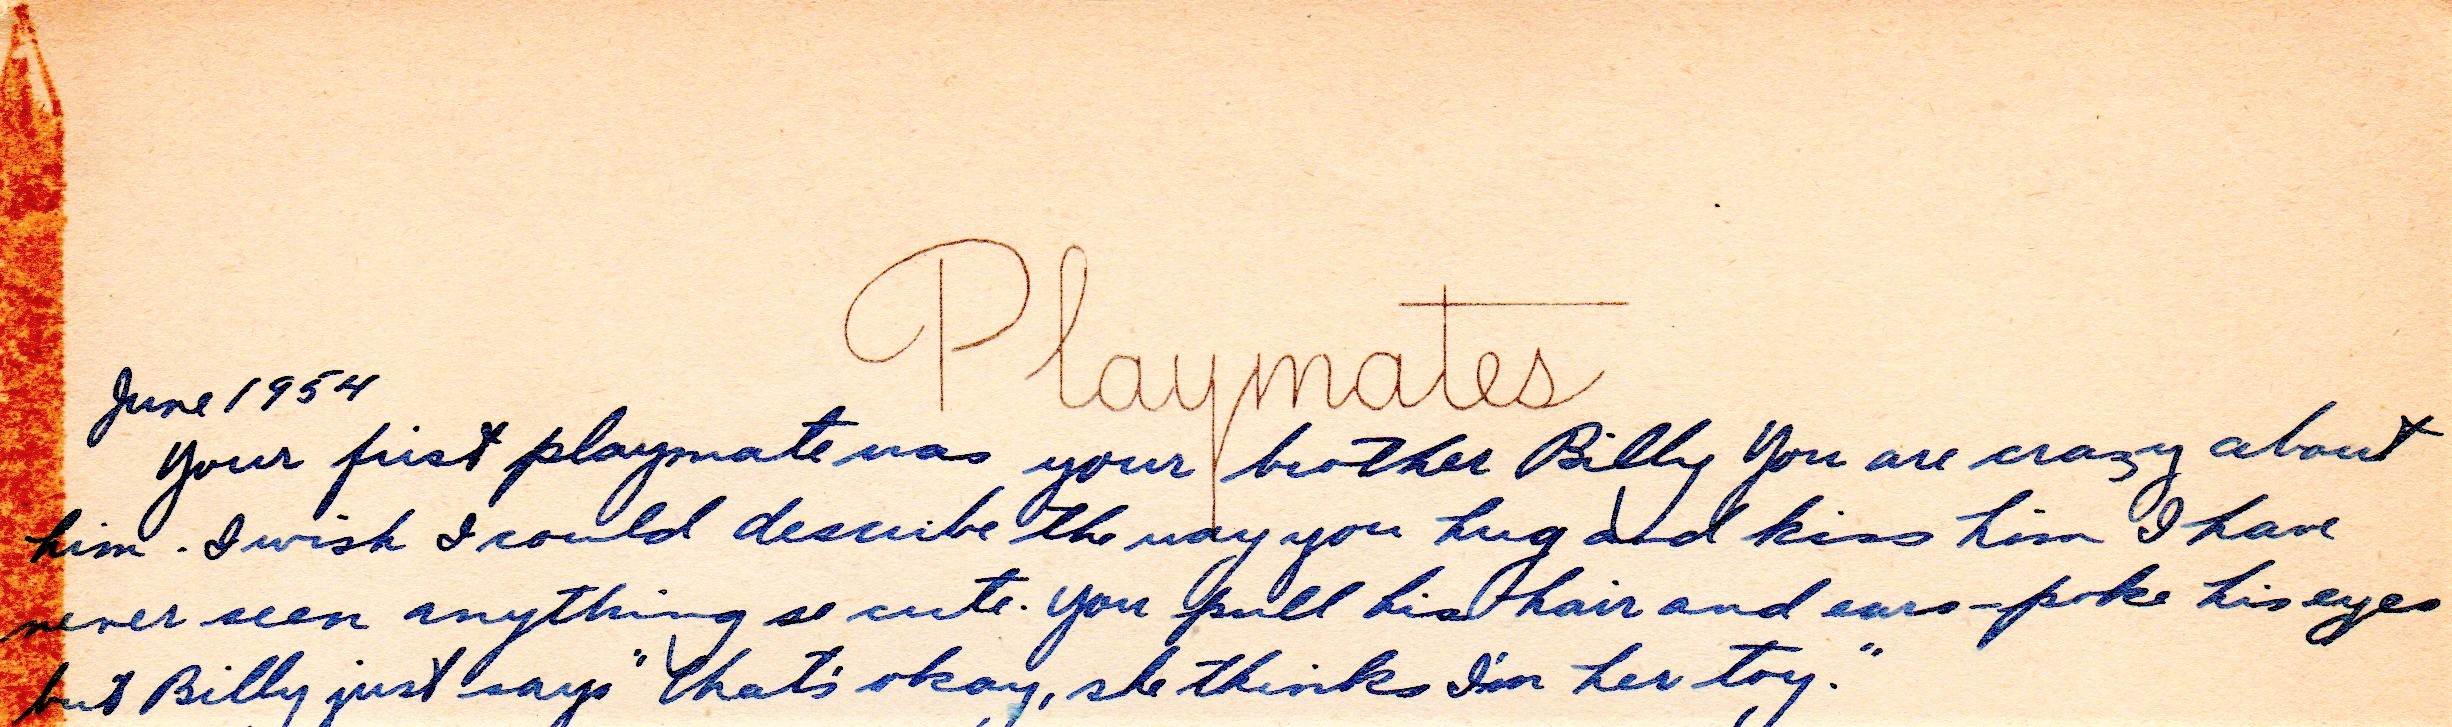 Playmates
June 1954
Your first playmate was your brother Billy You are crazy about
him. I wish I could describe the way you hug and kiss him I have
never seen anything so cute. You pull his hair and ears-poke his eyes
but Billy just says "that's okay, she thinks I'm her toy."